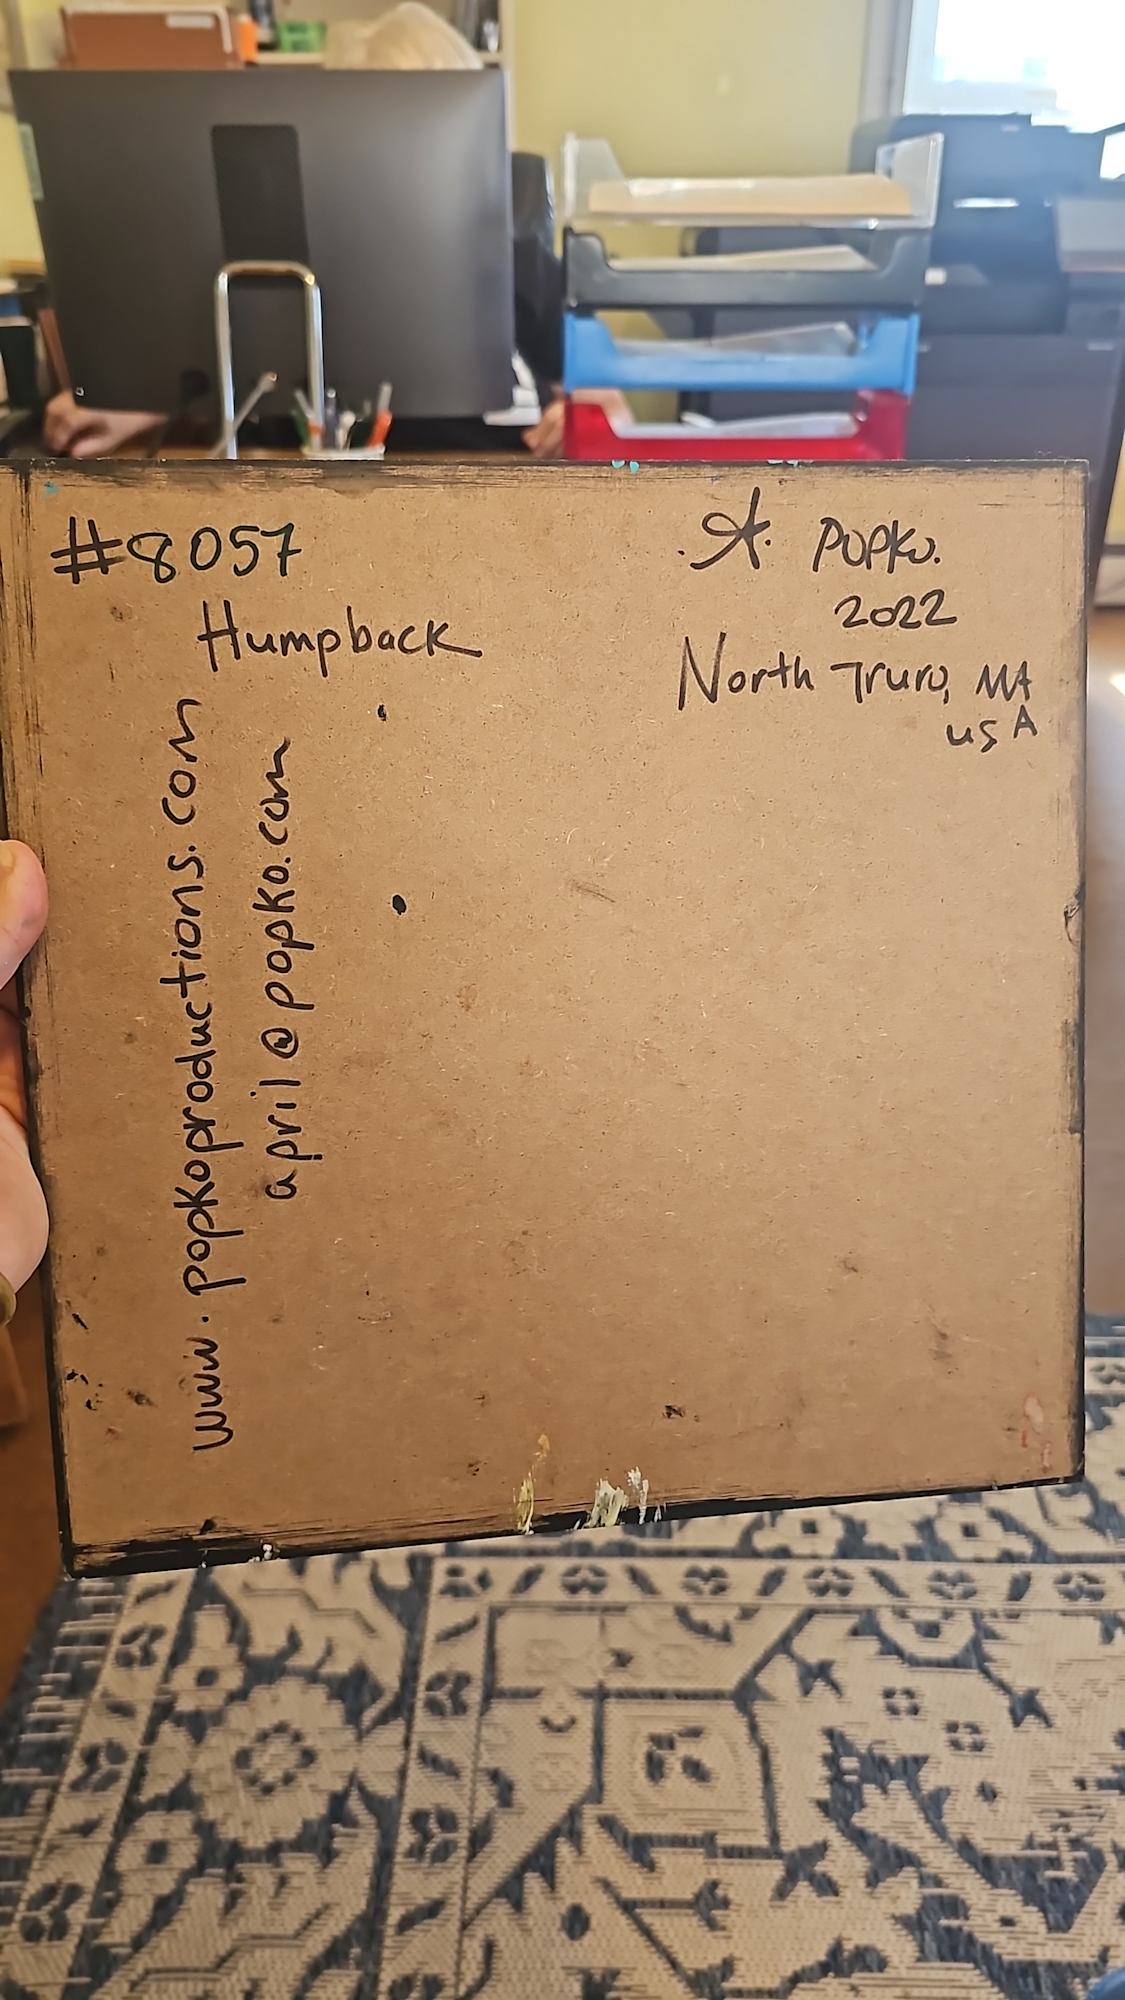 #8057
Humpback
A. Popko.
2022
North Truro, MA
USA
www.popkoproductions.com
april@popko.com